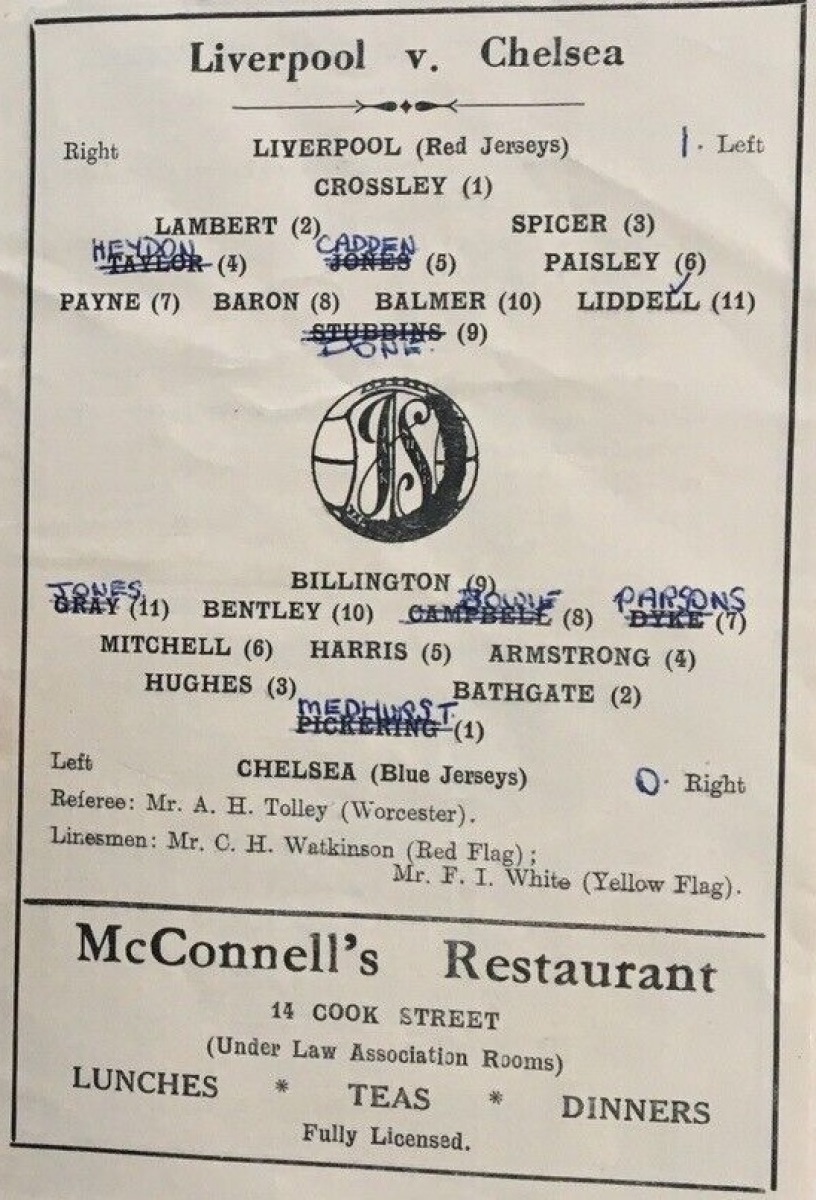 Liverpool v. Chelsea
Right LIVERPOOL (Red Jerseys) 1. Left
CROSSLEY (1)
LAMBERT (2) SPICER (3)
HEYDON CADDEN
TAYLOR (4) JONES (5) PAISLEY (6)
PAYNE (7) BARON (8) BALMER (10) LIDDELL (11)
STUBBINS (9)
DONE.
BILLINGTON (9)
JONES BOWIE PARSONS
GRAY (11) BENTLEY (10) CAMPBELL (8) DYKE (7)
MITCHELL (6) HARRIS (5) ARMSTRONG (4)
HUGHES (3) BATHGATE (2)
MEDHURST.
PICKERING (1)
Left CHELSEA (Blue Jerseys) 0. Right
Referee: Mr. A. H. Tolley (Worcester).
Linesmen: Mr. C. H. Watkinson (Red Flag);
Mr. F. I. White (Yellow Flag).
McConnell's Restaurant
14 COOK STREET
(Under Law Association Rooms)
LUNCHES * TEAS * DINNERS
Fully Licensed.